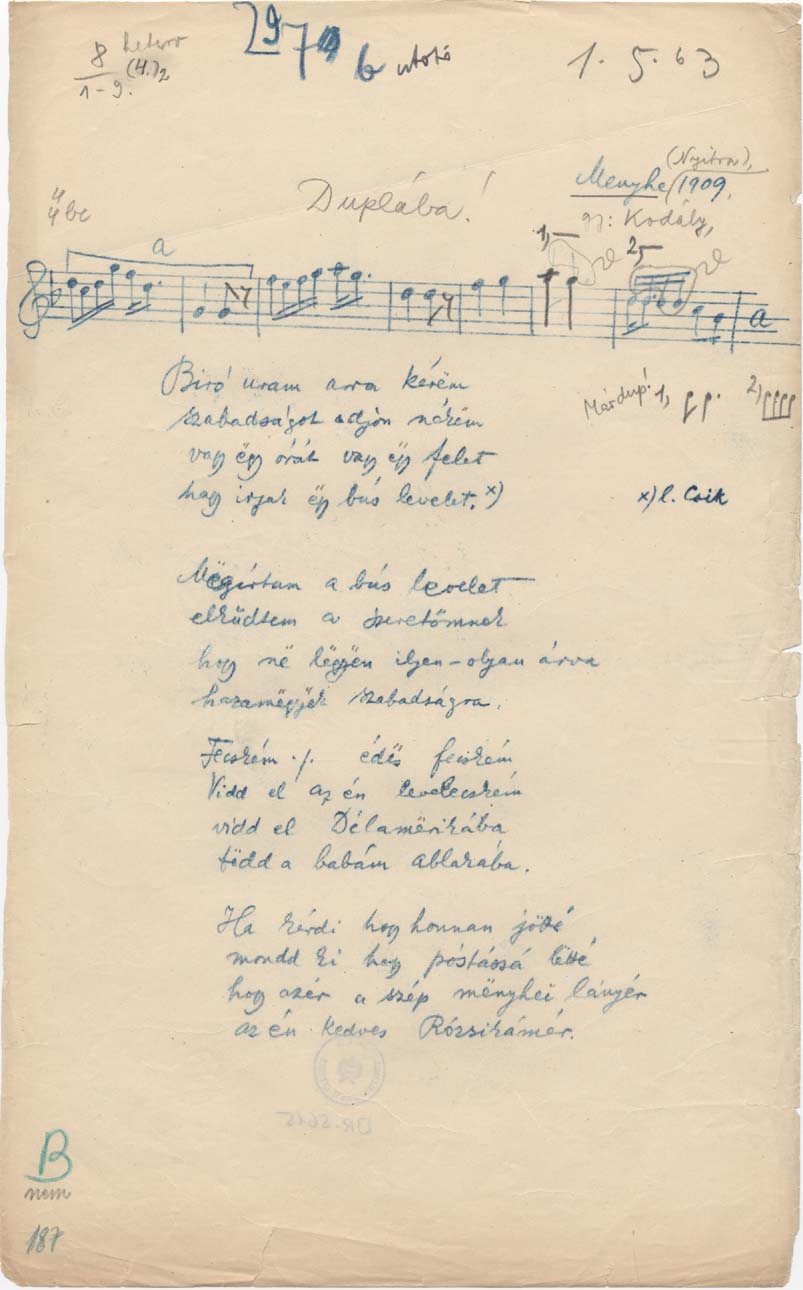 8 hetero
1-9. (4.)2
29
7 6 utotó
1. 5. 63
(Nyitra),
Menyhe 1909.
gy: Kodály,
Duplába!
4
4 be
a
1,
2,
a
Biró uram arra kérëm
szabadságot adjon nékëm
vagy ëgy órát vagy ëgy felet
hagy irjak ëgy bús levelet. x)
Márdup! 1,
2,
x) l. Csik
Mëgírtam a bús levelet
elküdtem a szeretőmnek
hogy në légyën ilyen-olyan árva
hazamëgyëk szabadságra.
Fecském ·/· édës fecském
Vidd el az én levelecském
vidd el Délamërikába
tëdd a babám ablakába.
Ha kérdi hogy honnan jötté
mondd ki hogy póstássá letté
hogy azér a szép mënyhei lányér
az én kedves Rózsikámér.
DR. 5615
B
nem
187